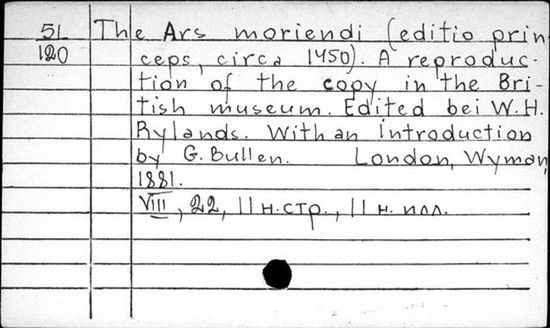 51 The Ars moriendi (editio prin-
120 ceps, circa 1450). A reproduc-
tion of the copy in the Bri-
tish museum. Edited bei W.H.
Rylands. With an introduction
by G. Bullen. London, Wyman,
1881.
VIII, 22, 11 н.стр., 11 н. илл.